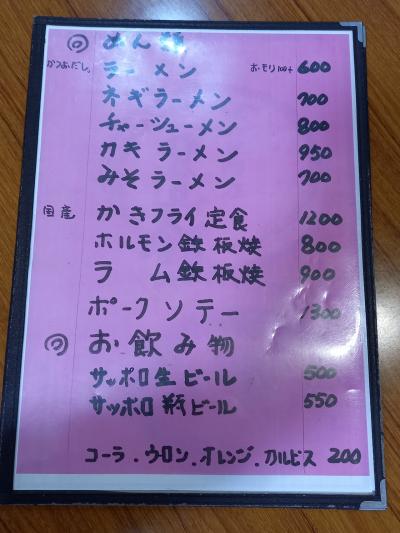 ◎ めん類
かつおだし。 ラーメン 大・モリ100+ 600
ネギラーメン 700
チャーシューメン 800
カキラーメン 950
みそラーメン 700
国産 かきフライ定食 1200
ホルモン鉄板焼 800
ラム鉄板焼 900
ポークソテー 1300
◎ お飲み物
サッポロ生ビール 500
サッポロ瓶ビール 550
コーラ.ウロン.オレンジ.カルピス 200